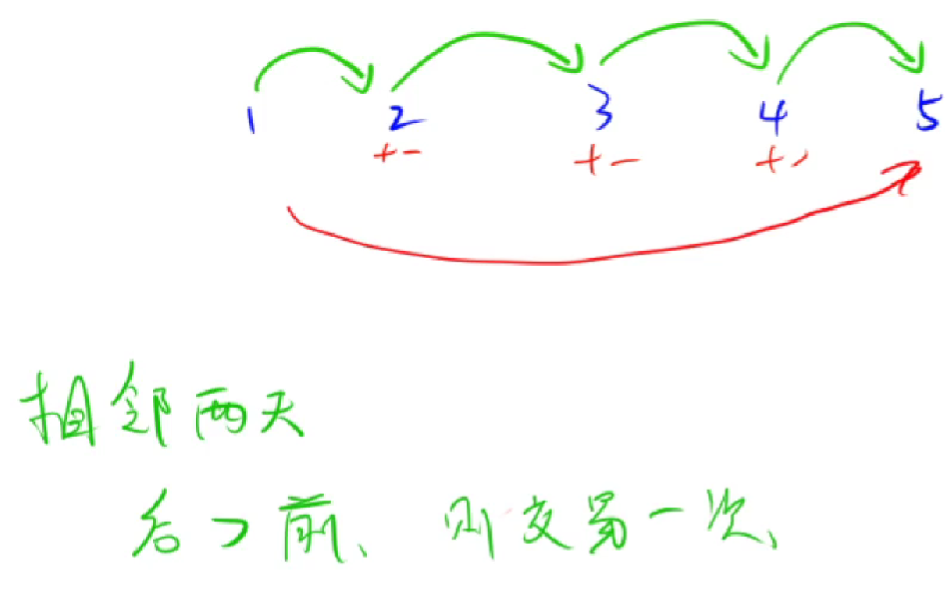 1 2 3 4 5
+- +- +-
相邻两天
后>前、则交易一次、